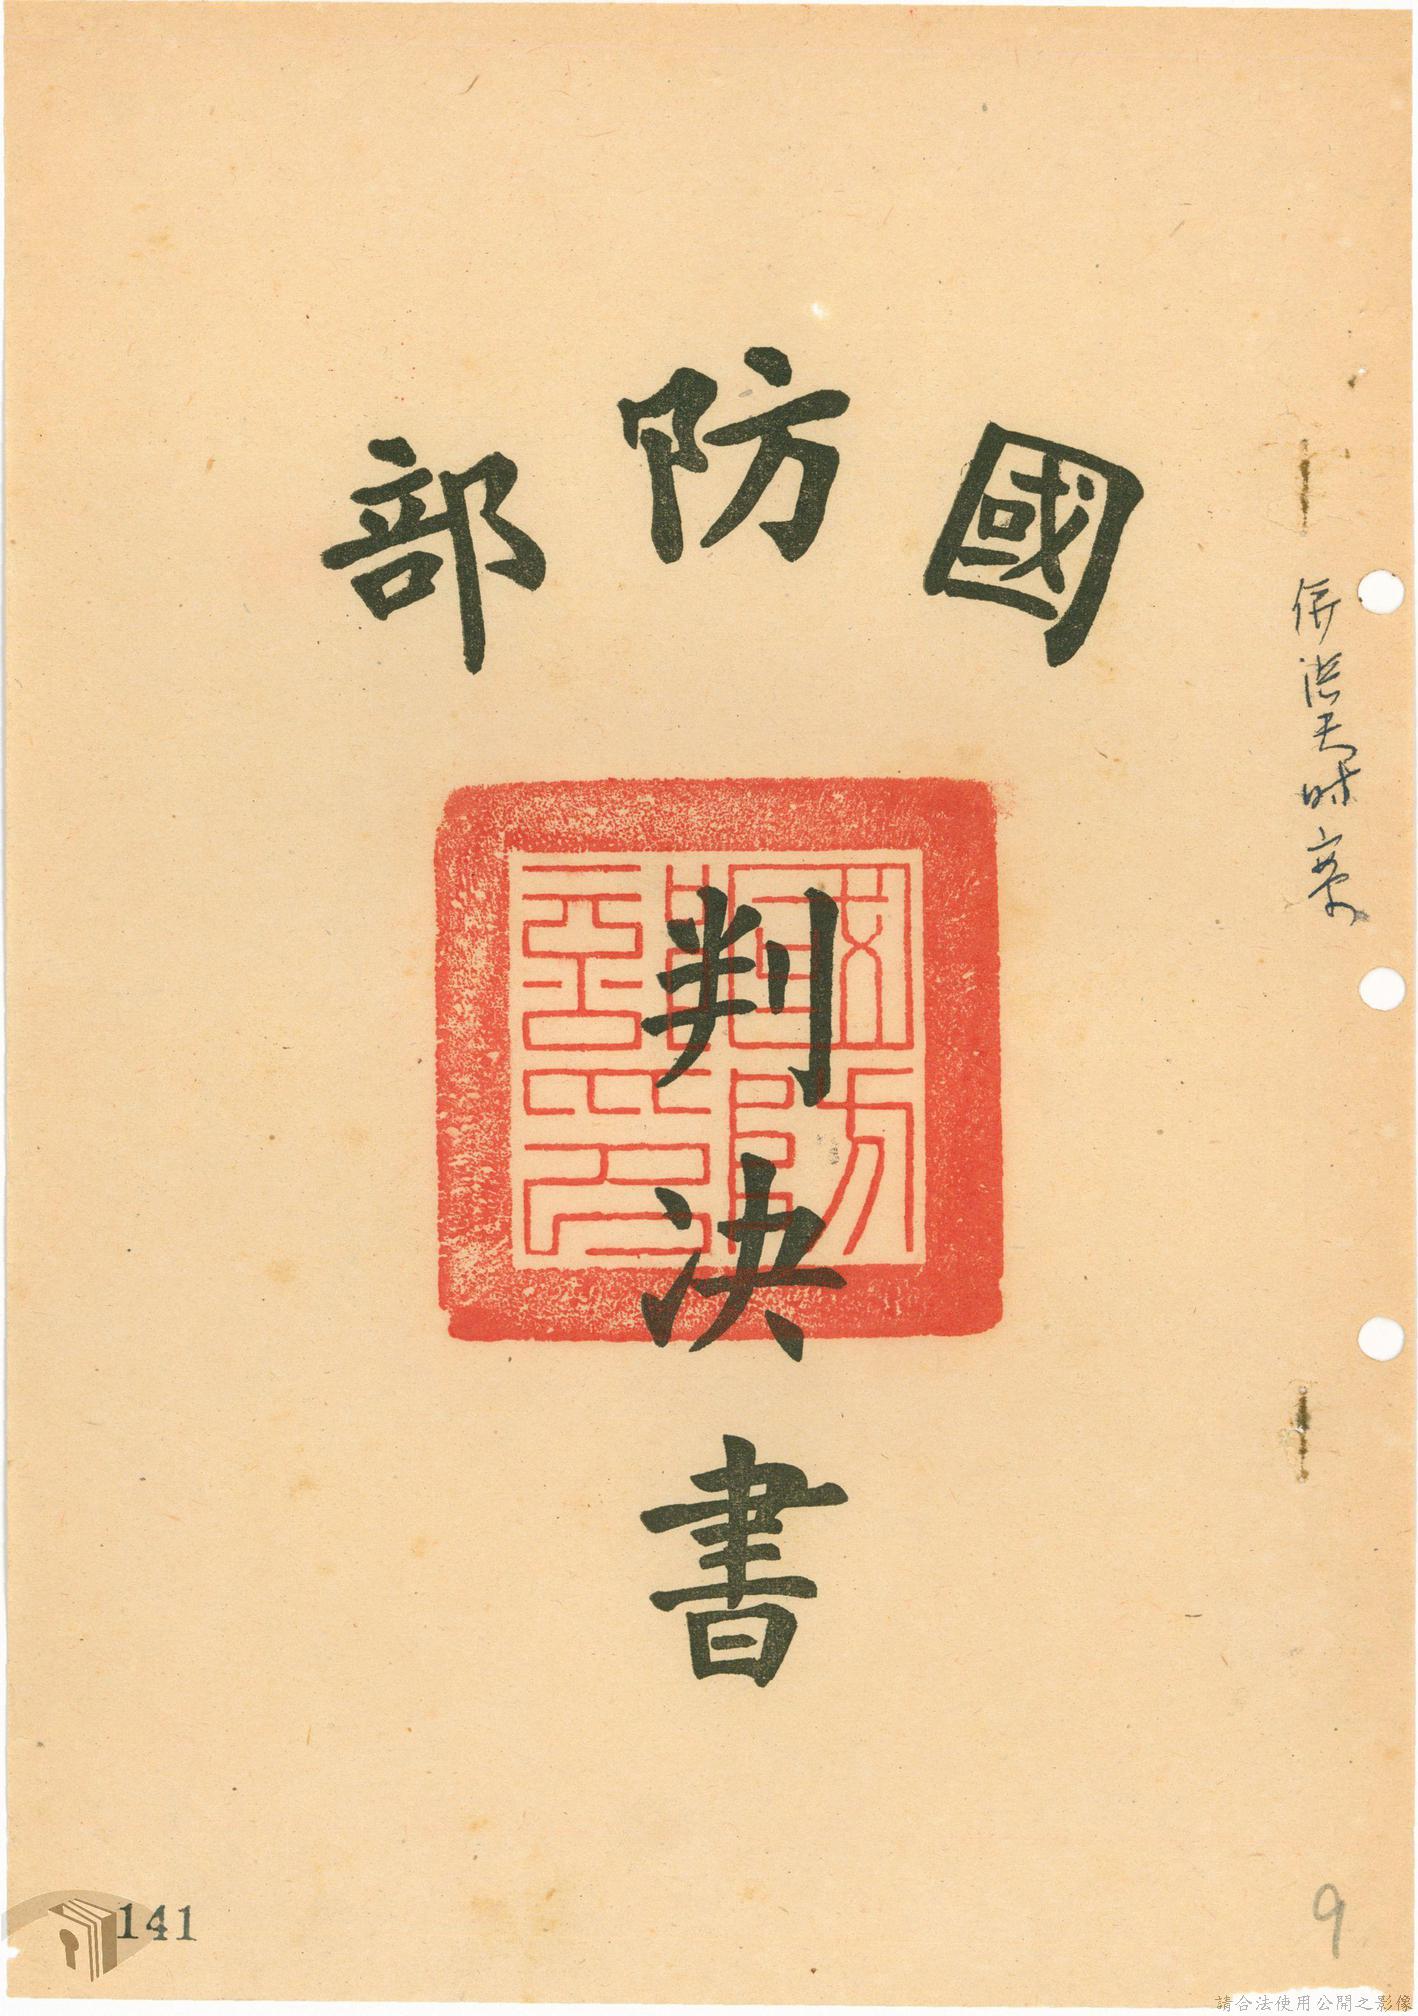 國防部
判決書
國防部印
141
9
請合法使用公開之影像